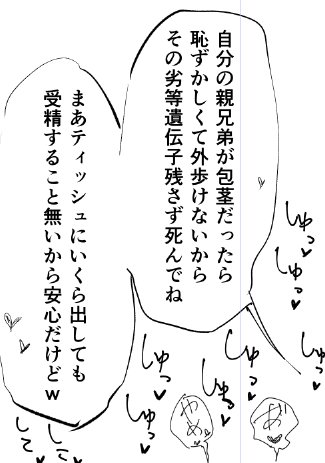 自分の親兄弟が包茎だったら
恥ずかしくて外歩けないから
その劣等遺伝子残さず死んでね
まあティッシュにいくら出しても
受精すること無いから安心だけどw
しゅっ♥
しゅっ♥
しゅっ♥
しゅっ♥
しゅっ♥
しゅっ♥
しこ♥
しこ♥
お♥
やめ♥